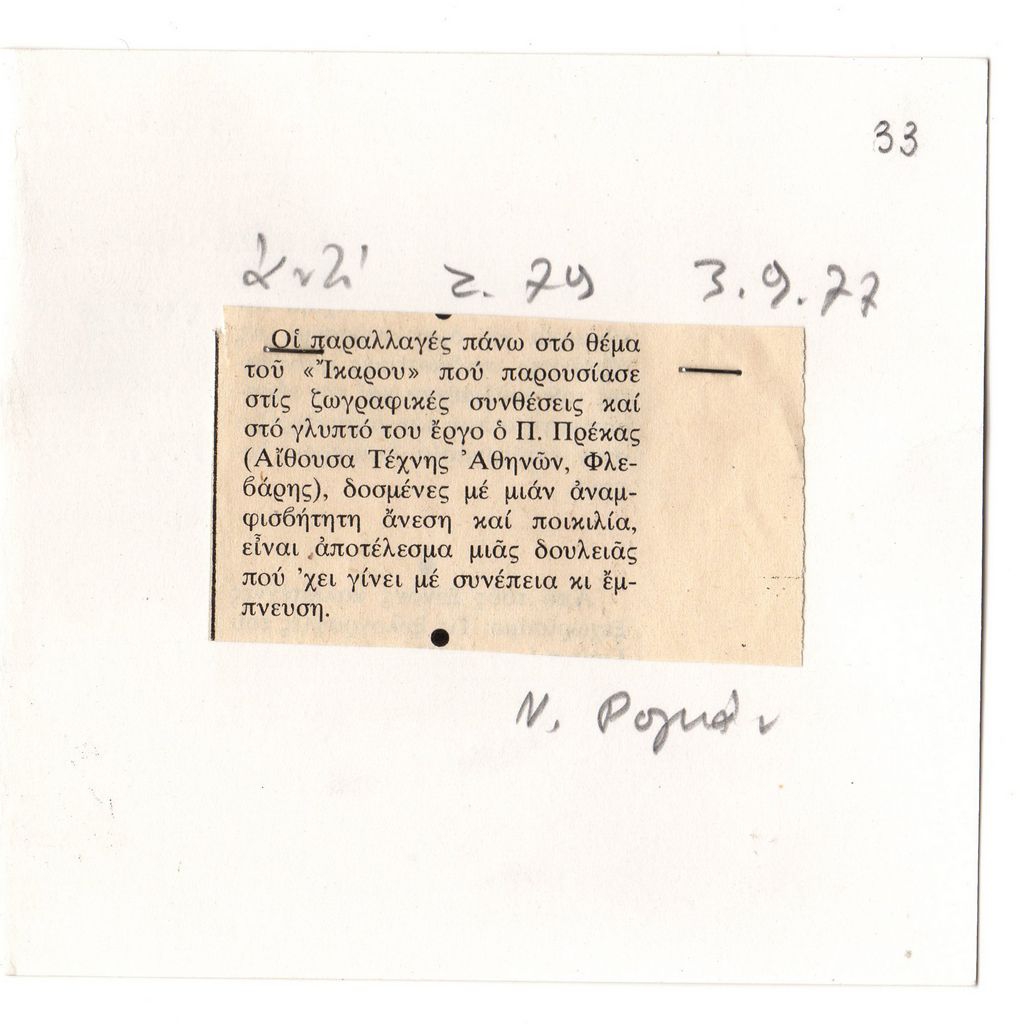 33
Ἀντί τ. 79 3.9.77
Οἱ παραλλαγές πάνω στό θέμα
τοῦ «Ἴκαρου» πού παρουσίασε
στίς ζωγραφικές συνθέσεις καί
στό γλυπτό του ἔργο ὁ Π. Πρέκας
(Αἴθουσα Τέχνης Ἀθηνῶν, Φλε-
βάρης), δοσμένες μέ μιάν ἀναμ-
φισβήτητη ἄνεση καί ποικιλία,
εἶναι ἀποτέλεσμα μιᾶς δουλειᾶς
πού 'χει γίνει μέ συνέπεια κι ἔμ-
πνευση.
Ν.